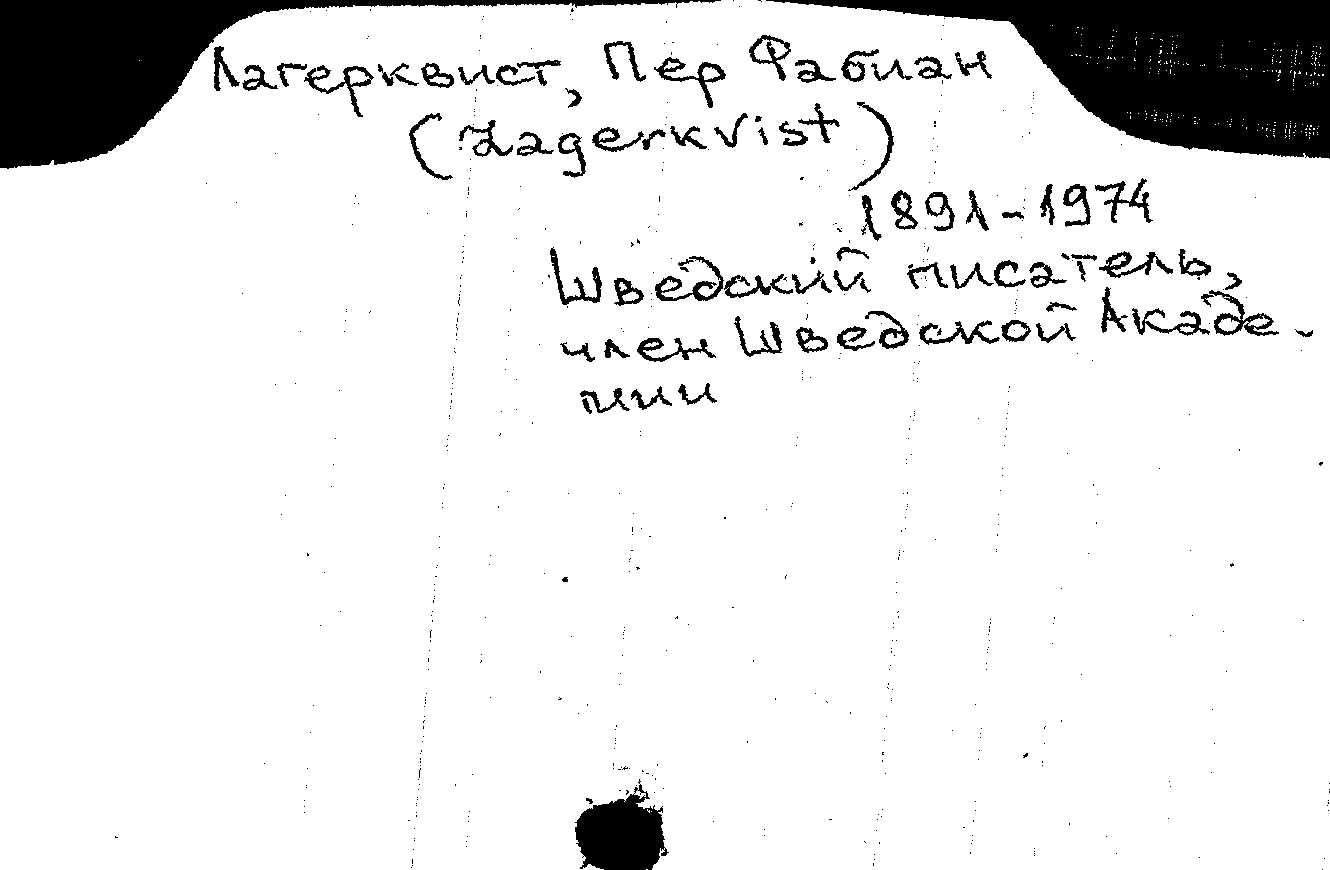 Лагерквист, Пер Фабиан
(Lagerkvist)
1891-1974
Шведский писатель,
член Шведской Акаде-
мии